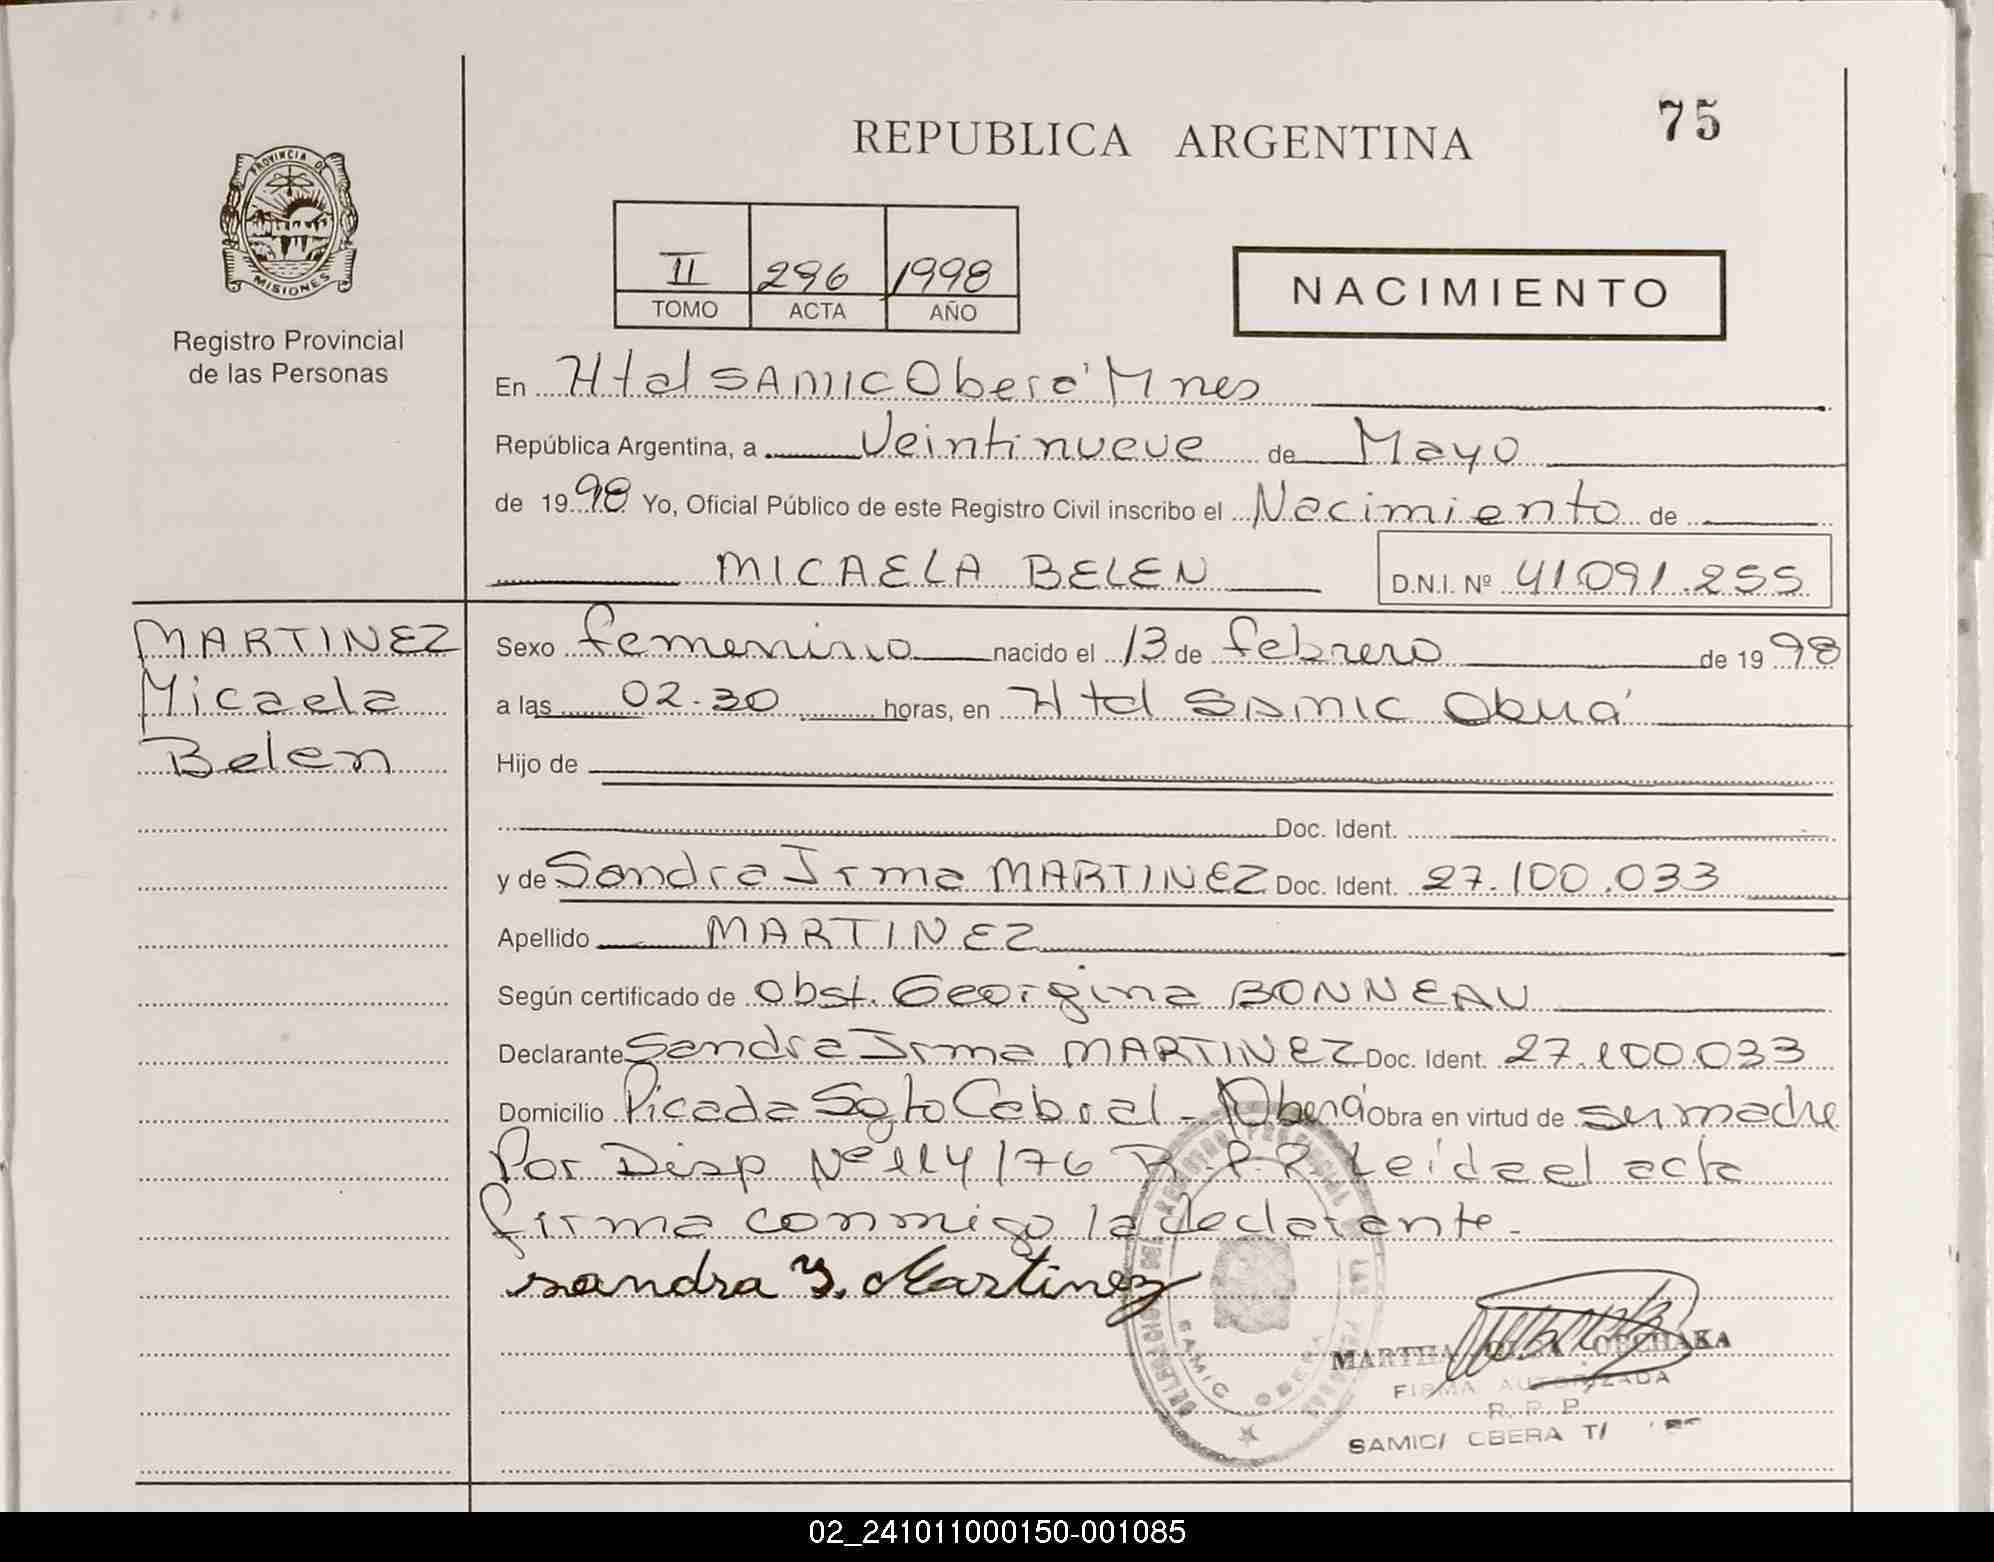 75
REPUBLICA ARGENTINA
PROVINCIA DE
MISIONES
Registro Provincial
de las Personas
II 296 1998
TOMO ACTA AÑO
NACIMIENTO
En Htal SAMIC Oberá Mnes
República Argentina, a Veintinueve de Mayo
de 1998 Yo, Oficial Público de este Registro Civil inscribo el Nacimiento de
MICAELA BELEN D.N.I. Nº 41091.255
MARTINEZ
Micaela
Belen
Sexo femenino nacido el 13 de febrero de 1998
a las 02.30 horas, en Htal SAMIC Oberá
Hijo de
Doc. Ident.
y de Sandra Irma MARTINEZ Doc. Ident. 27.100.033
Apellido MARTINEZ
Según certificado de Obst. Georgina BONNEAU
Declarante Sandra Irma MARTINEZ Doc. Ident. 27.100.033
Domicilio Picada Sgto Cabral - Oberá Obra en virtud de ser madre
Por Disp Nº 114/76 R.P.P. Leída el acta
firma conmigo la declarante.
sandra Y. Martinez
DELEGACION DEL REGISTRO PROVINCIAL DE LAS PERSONAS
SAMIC OBERA
MARTHA
FIRMA AUTORIZADA
R. P. P.
SAMIC/ OBERA T/
02_241011000150-001085